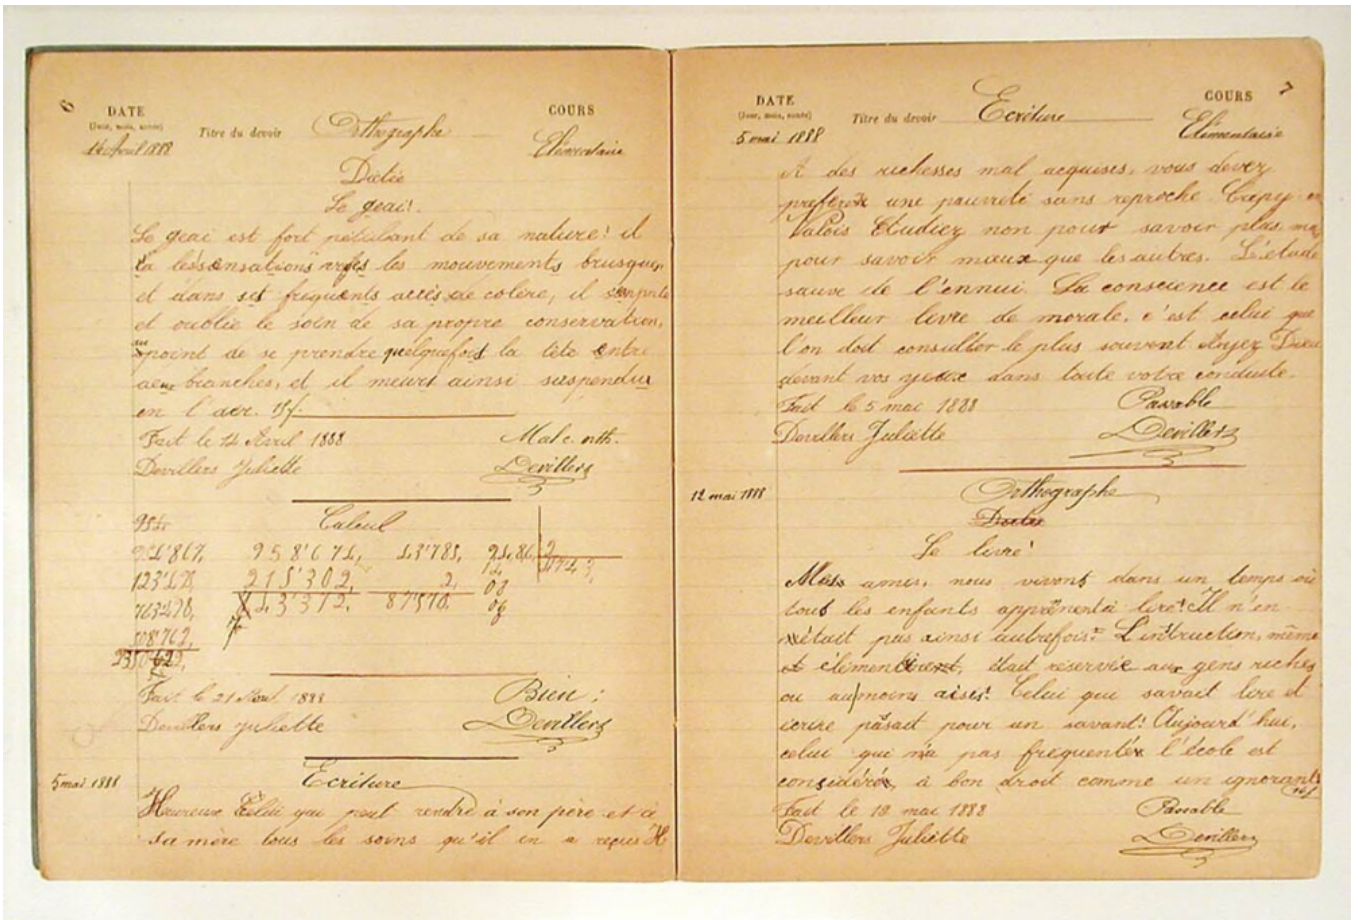 6
DATE
(Jour, mois, année)
14 Avril 1888
Titre du devoir Orthographe
COURS
Elémentaire
Dictée
Le geai.
Le geai est fort pétulant de sa nature: il
a les sensations vives les mouvements brusques
et dans ses frequents accès de colère, il s'emporte
et oublie le soin de sa propre conservation,
au point de se prendre quelquefois la tête entre
deux branches, et il meurt ainsi suspendu
en l'air.
Fait le 14 Avril 1888
Devillers Juliette
Devillers
Calcul
958'674, 43'785, 9486 2
123'678, 215'302, 2, 4743,
743'372. 87'570. 08
06
Fait le 21 1888 Bien
Devillers Juliette Devillers
5 mai 1888
Ecriture
Heureux Celui qui peut rendre à son père et à
sa mère tous les soins qu'il en a reçus
7
DATE
(Jour, mois, année)
5 mai 1888
Titre du devoir Ecriture
COURS
Elémentaire
A des richesses mal acquises, vous devez
preferer une pauvreté sans reproche. Crépy en
Valois Etudiez non pour savoir plus mais
pour savoir mieux que les autres. L'étude
sauve de l'ennui. La conscience est le
meilleur livre de morale, c'est celui que
l'on doit consulter le plus souvent. Ayez Dieu
devant vos yeux dans toute votre conduite.
Fait le 5 mai 1888 Passable
Devillers Juliette Devillers
12 mai 1888
Orthographe
Dictée
Le livre
Mes amis, nous vivons dans un temps où
tous les enfants apprennent à lire! Il n'en
était pas ainsi autrefois: L'intruction, même
élémentaire, était reservée aux gens riches
ou au moins aisés: Celui qui savait lire et
écrire passait pour un savant! Aujourd'hui,
celui qui n'a pas frequenté l'école est
considéré, à bon droit comme un ignorant
Fait le 12 mai 1888 Passable
Devillers Juliette Devillers